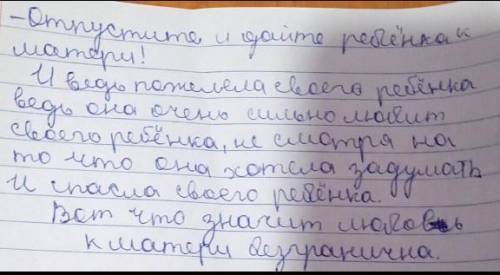 -Отпустите и дайте ребёнка к
матери!
И ведь пожелела своего ребёнка
ведь она очень сильно любит
своего ребёнка, не смотря на
то что она хотела задумать
И спасла своего ребёнка.
Вот что значит любовь
к матери безгранична.